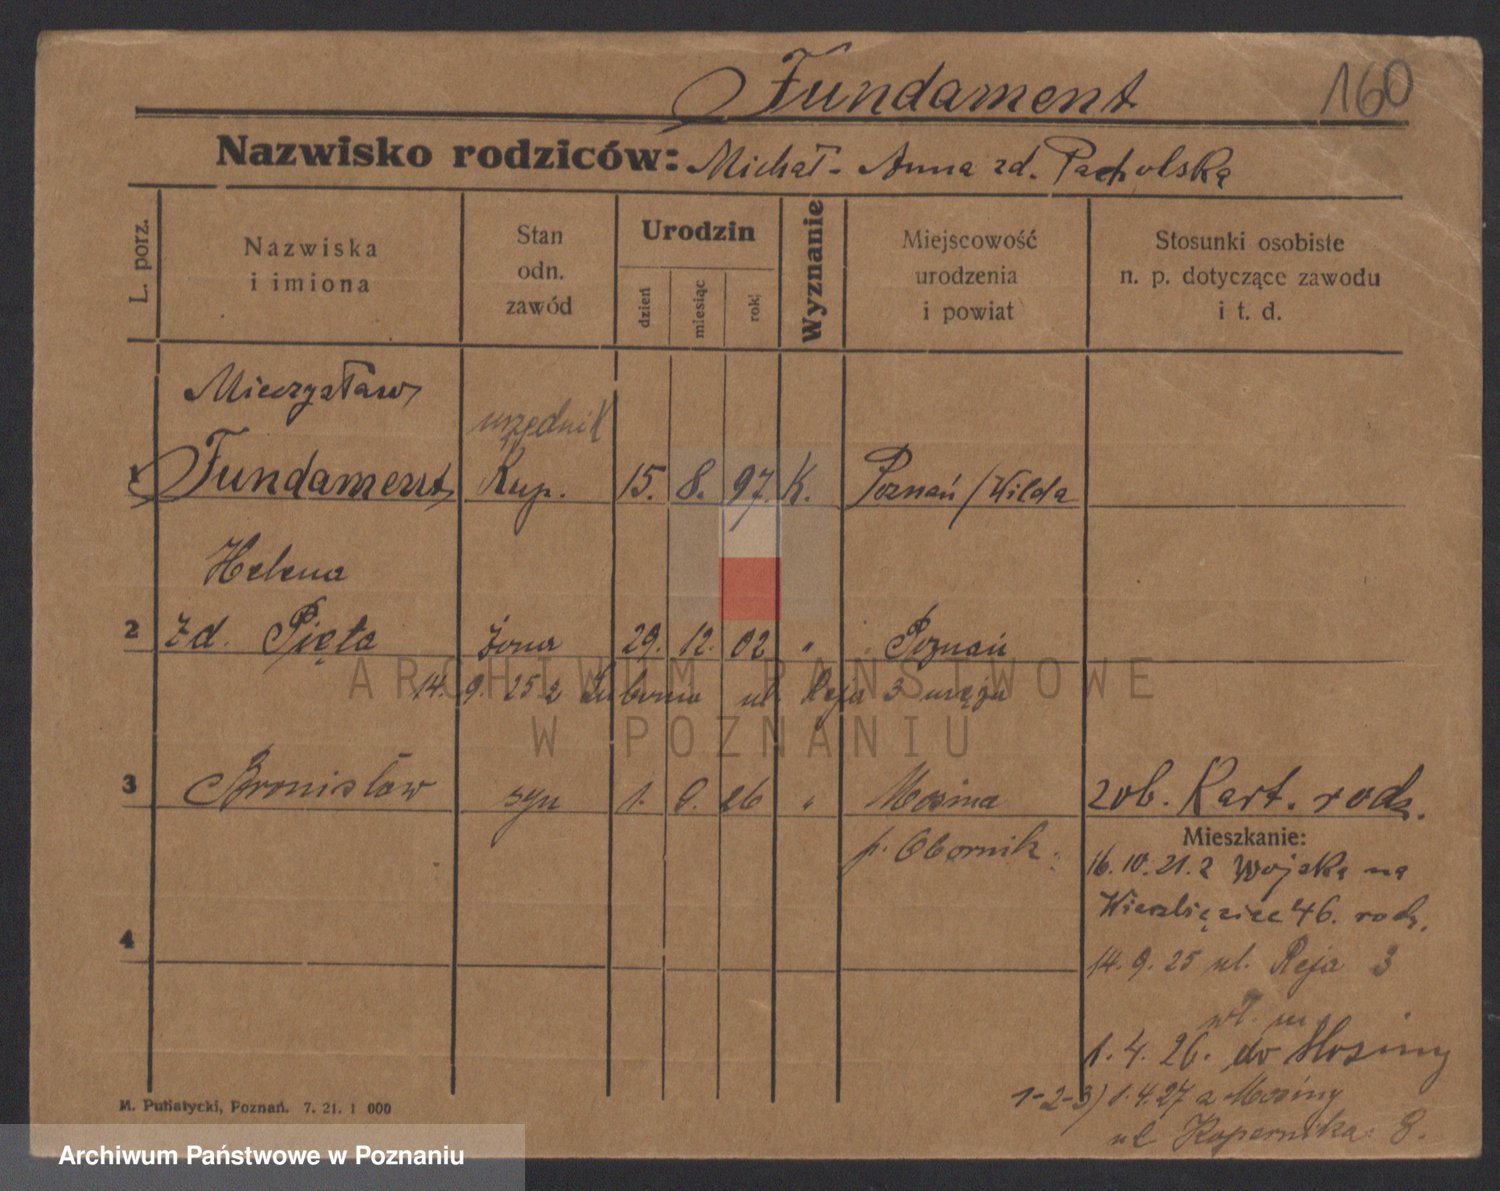 Fundament 160
Nazwisko rodziców: Michał - Anna zd. Pacholską
L. porz.
Nazwiska
i imiona
Stan
odn.
zawód
Urodzin
dzień
miesiąc
rok
Wyznanie
Miejscowość
urodzenia
i powiat
Stosunki osobiste
n. p. dotyczące zawodu
i t. d.
Mieczysław
urzędnik
1 Fundament Kup. 15. 8. 97. K. Poznań / Wilda
Helena
2 zd. Pięta żona 29. 12. 02 " Poznań
14. 9. 25 z Lubonia ul. Reja 3 męża
ARCHIWUM PAŃSTWOWE
W POZNANIU
3 Bronisław syn 1. 9. 26 " Mosina zob. Kart. rodz.
p. Obornik.
Mieszkanie:
16. 10. 21. z Wojska na
Wierzbięcice 46. rodz.
4
14. 9. 25 ul. Reja 3
1. 4. 26. do Mosiny
1-2-3) 1.4.27 z Mosiny
ul Kopernika 8.
M. Putiatycki, Poznań. 7. 21. 1 000
Archiwum Państwowe w Poznaniu